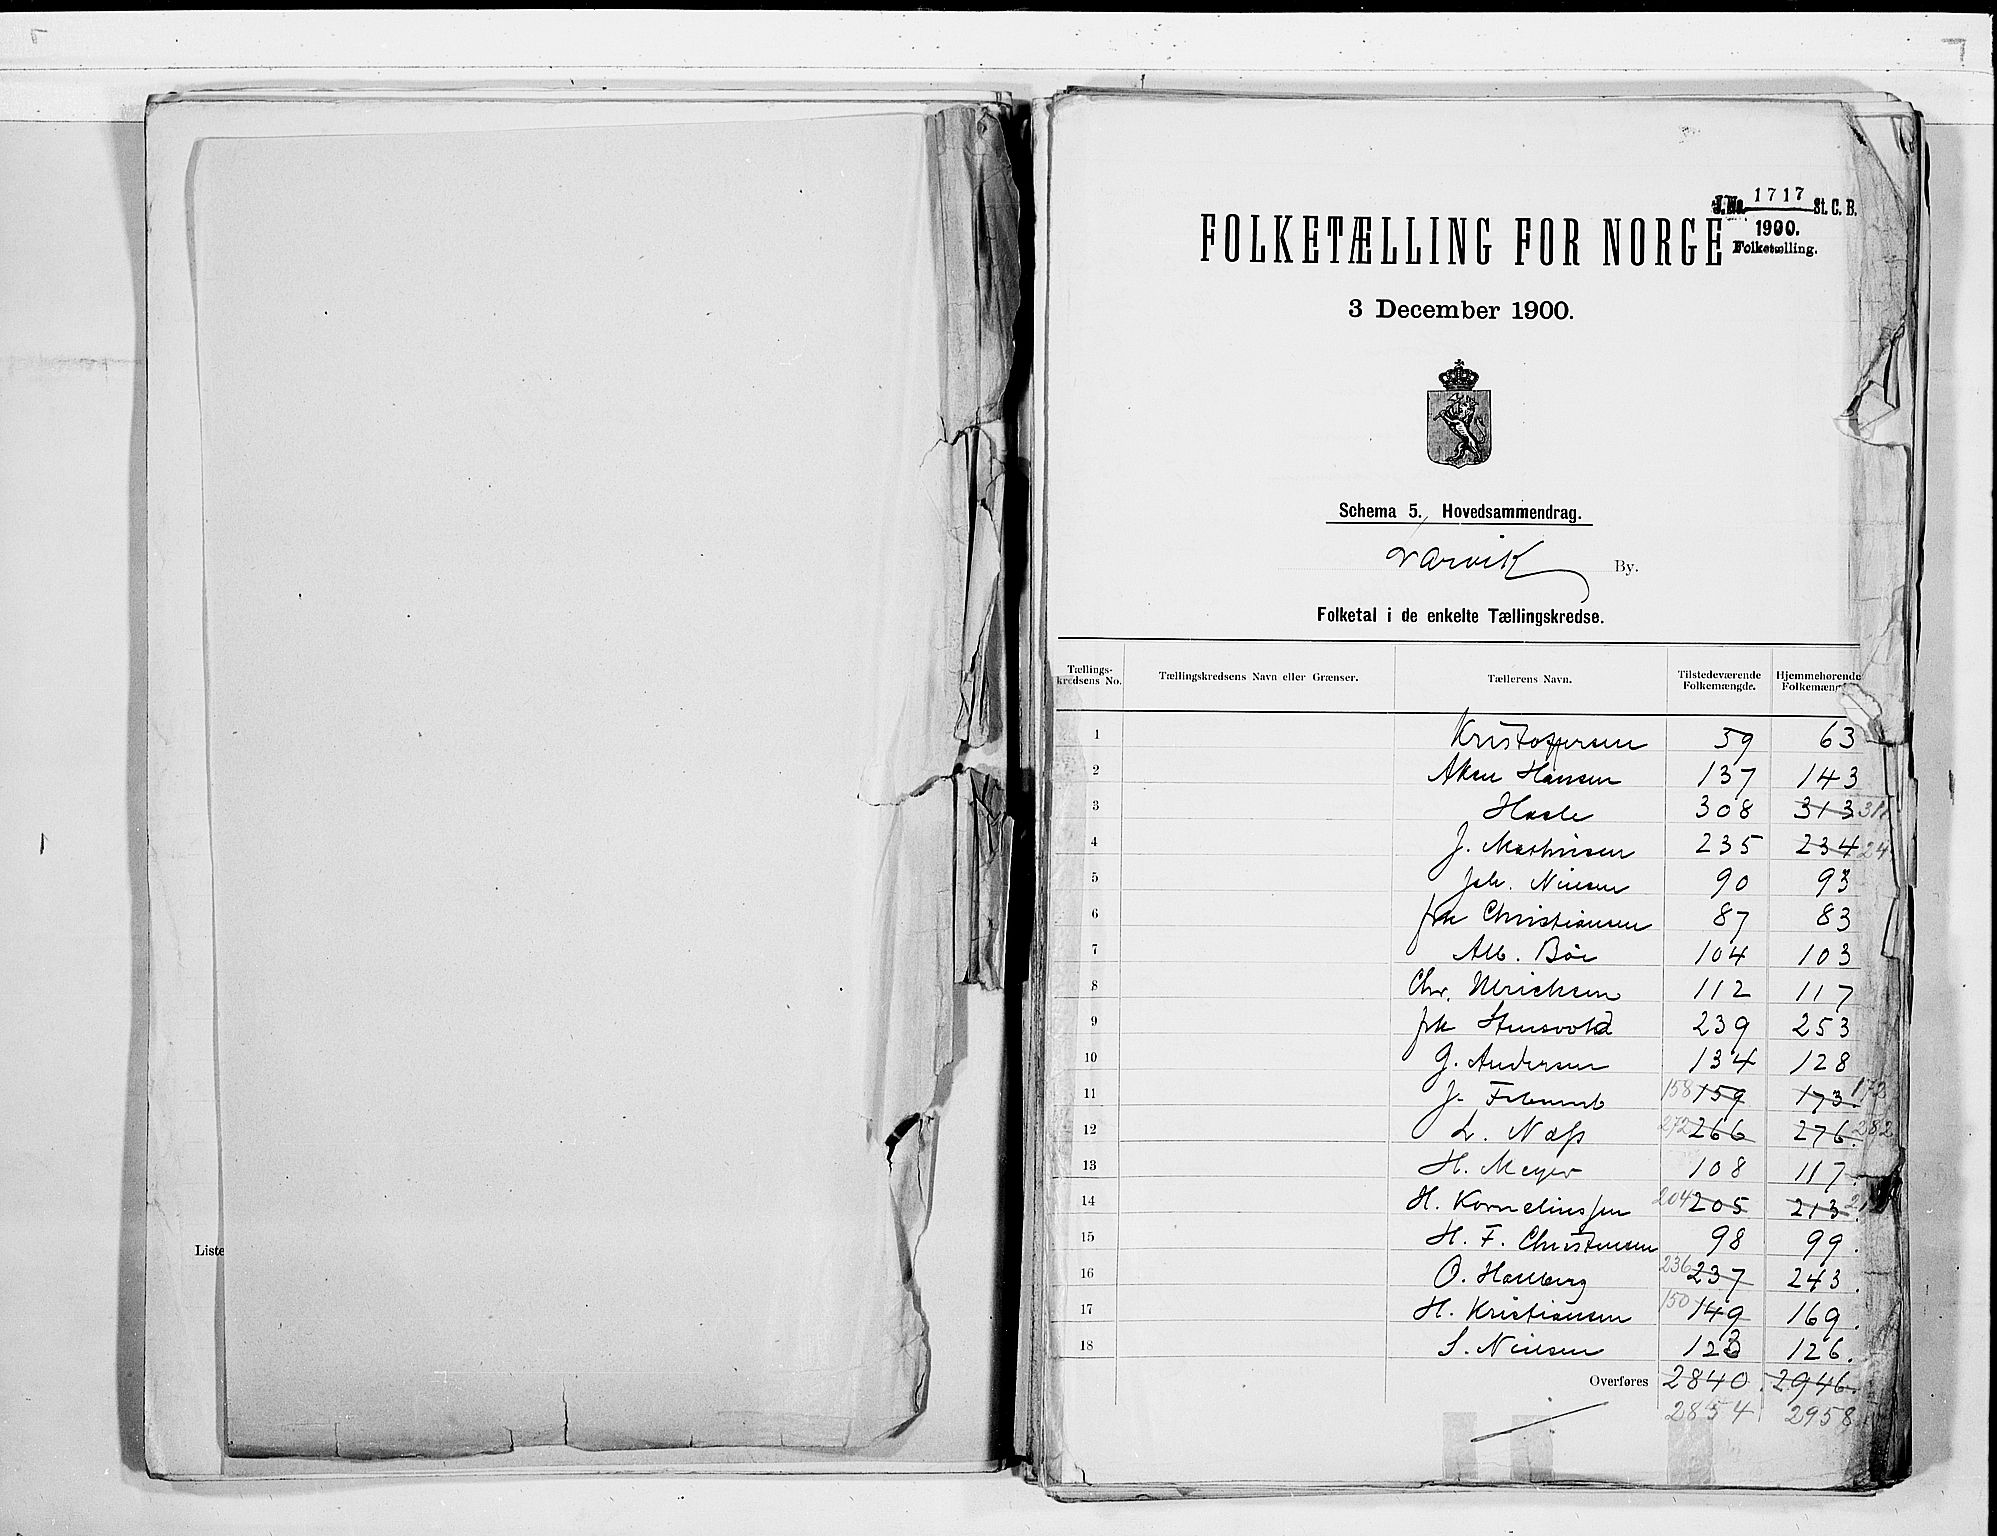 J.No. 1717 St. C. B.
1900.
Folketælling.
FOLKETÆLLING FOR NORGE
3 December 1900.
Schema 5. Hovedsammendrag.
Narvik By.
Folketal i de enkelte Tællingskredse.
Tællings-kredsens No. Tællingskredsens Navn eller Grænser. Tællerens Navn. Tilstedeværende Folkemængde. Hjemmehørende
1 Kristoffersen 59 63
2 Aksu Hansen 137 143
3 Hasle 308 313
4 J. Mathisen 235 234
5 Joh. Nilsen 90 93
6 frk Christiansen 87 83
7 Alb. Böe 104 103
8 Chr. Ulrichsen 112 117
9 frk 239 253
10 G. Andersen 134 128
11 J. 158 159 173 172
12 L. Næss 272 266 276 282
13 H. Meyer 108 117
14 H. Korneliussen 204 205 213
15 H. F. Christensen 98 99
16 O. Hallberg 236 237 243
17 H. Kristiansen 150 149 169
18 S. Nilsen 123 126
Overføres 2840 2946
2854 2958
Liste